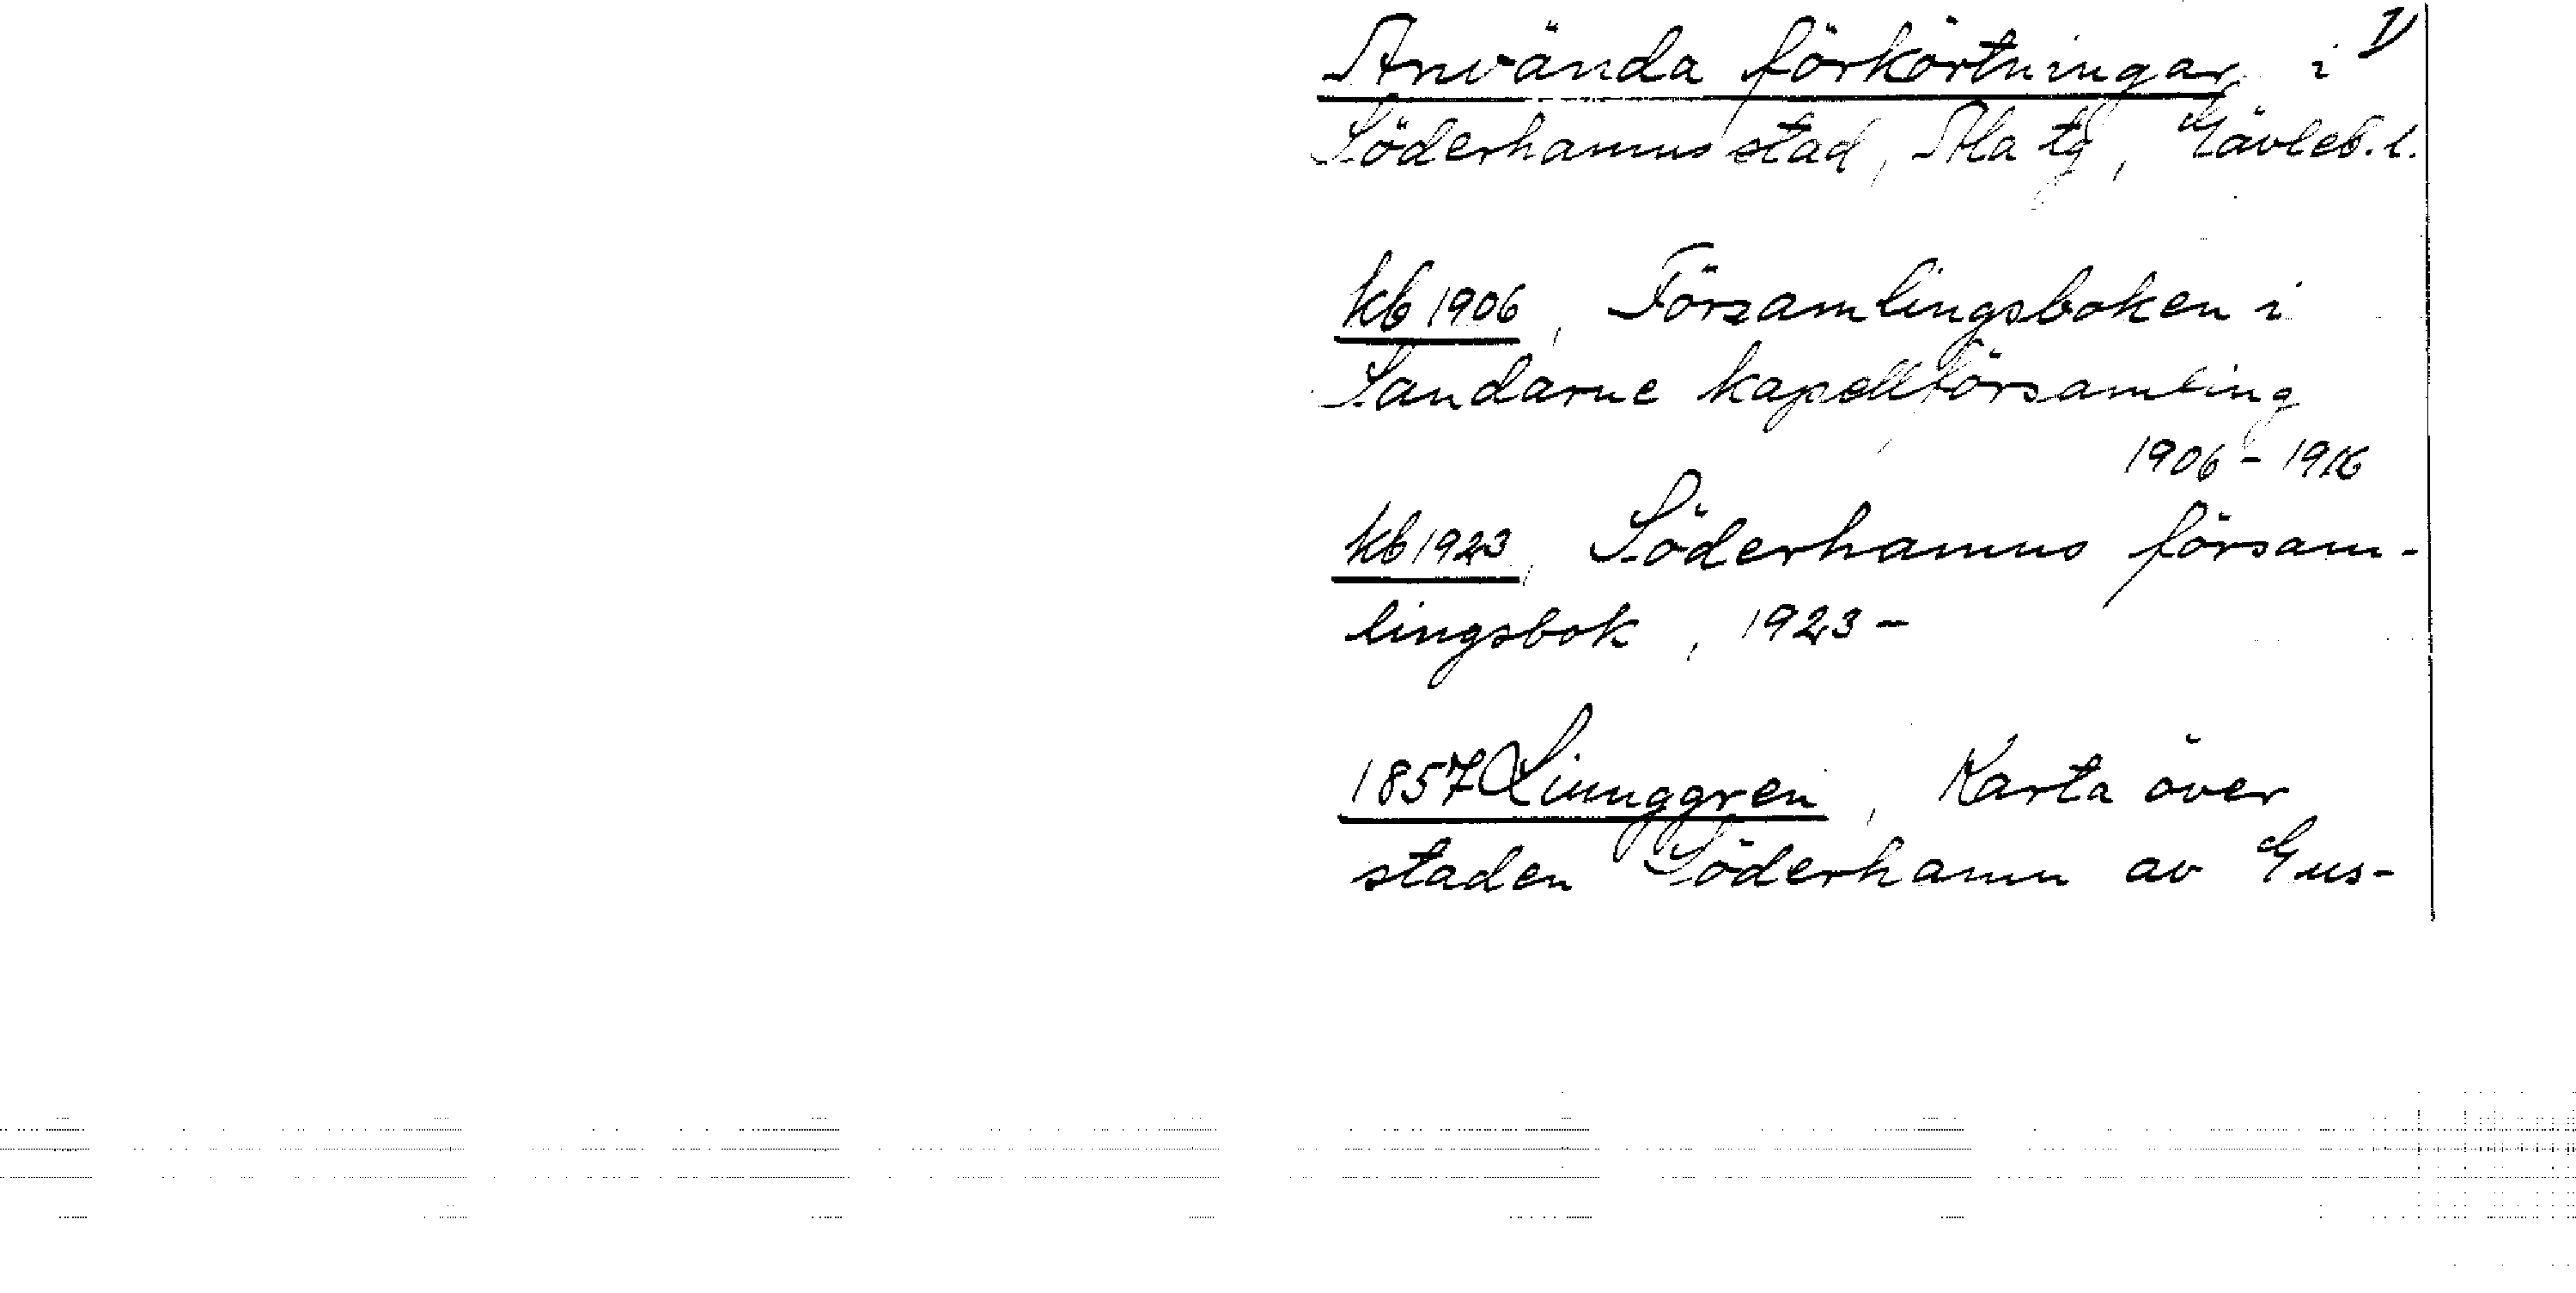 Använda förkörtningar i 1)
Söderhamns stad, Ala tg, Gävleb. l.
kb 1906, Församlingsboken i
Sandarne kapellförsamling
1906 - 1916
kb 1923, Söderhamns försam-
lingsbok, 1923 -
1857 Ljunggren, Karta över
staden Söderhamn av Gus-